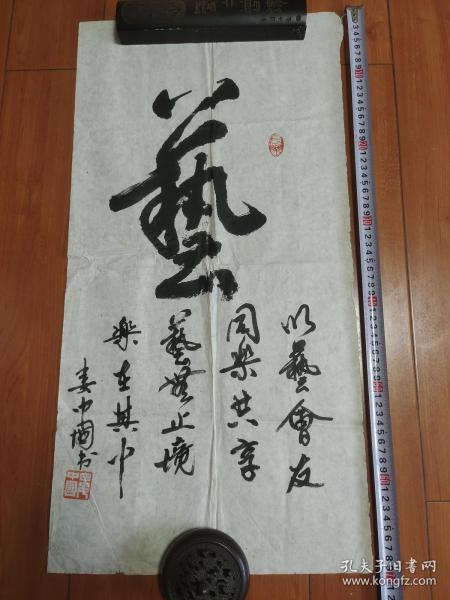 藝
以藝會友
同樂共享
藝無止境
樂在其中
婁中國书
孔夫子旧书网
www.kongfz.com